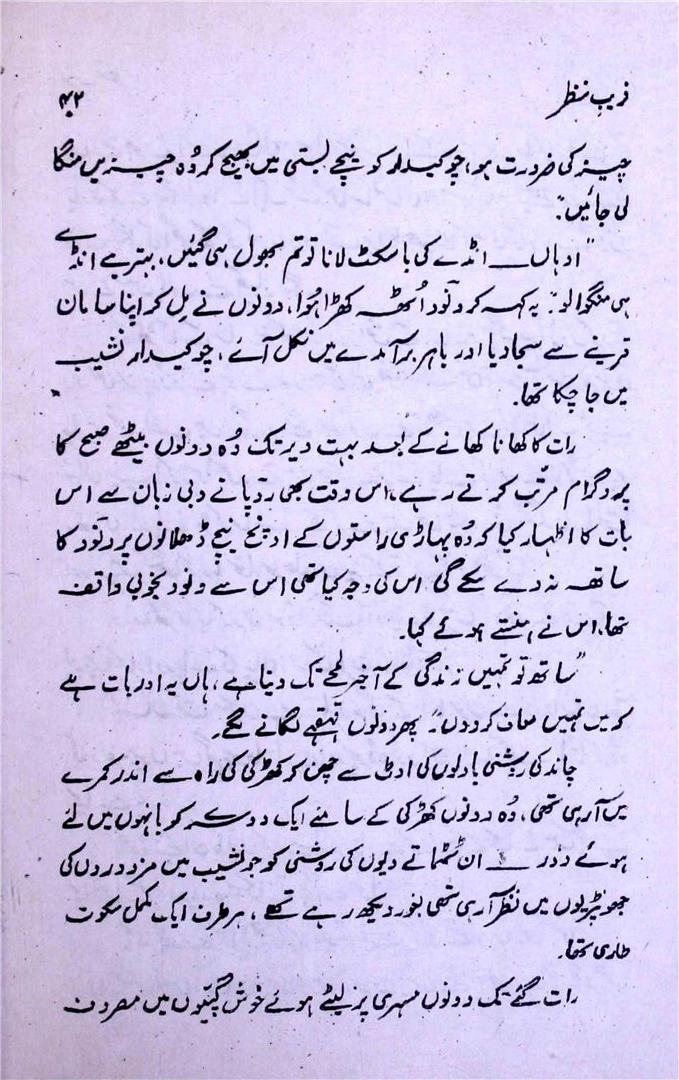 فریبِ نظر
۴۲
چیز کی ضرورت ہو، چوکیدار کو نیچے بستی میں بھیج کر وُہ چیزیں منگا
لی جائیں"۔
"اوہاں ـــــ انڈے کی باسکٹ لانا تو تم بھول ہی گئیں، بہتر ہے انڈے
ہی منگوالو"۔ یہ کہہ کر ونود اُٹھ کھڑا ہُوا، دونوں نے مِل کر اپنا سامان
قرینے سے سجا دیا اور باہر برآمدے میں نکل آئے، چوکیدار نشیب
میں جا چکا تھا۔
رات کا کھانا کھانے کے بعد بہت دیر تک وُہ دونوں بیٹھے صبح کا
پروگرام مرتّب کرتے رہے، اس وقت بھی روپا نے دبی زبان سے اس
بات کا اظہار کیا کہ وُہ پہاڑی راستوں کے اونچ نیچ ڈھلانوں پر ونود کا
ساتھ نہ دے سکے گی اس کی وجہ کیا تھی اس سے ونود بخوبی واقف
تھا، اس نے ہنستے ہوئے کہا۔
"ساتھ تو تمہیں زندگی کے آخر لمحے تک دینا ہے، ہاں یہ اور بات ہے
کہ میں تمہیں معاف کر دوں"۔ پھر دونوں قہقہے لگانے لگے۔
چاند کی روشنی بادلوں کی اوٹ سے چھن کر کھڑکی کی راہ سے اندر کمرے
میں آرہی تھی، وُہ دونوں کھڑکی کے سامنے ایک دوسرے کو بانہوں میں لئے
ہوئے دور ـــــ ان ٹمٹماتے دیوں کی روشنی کو جو نشیب میں مزدوروں کی
جھونپڑیوں میں نظر آرہی تھی بغور دیکھ رہے تھے، ہر طرف ایک مکمل سکوت
طاری تھا۔
رات گئے تک دونوں مسہری پر لیٹے ہوئے خوش گپیّوں میں مصروف